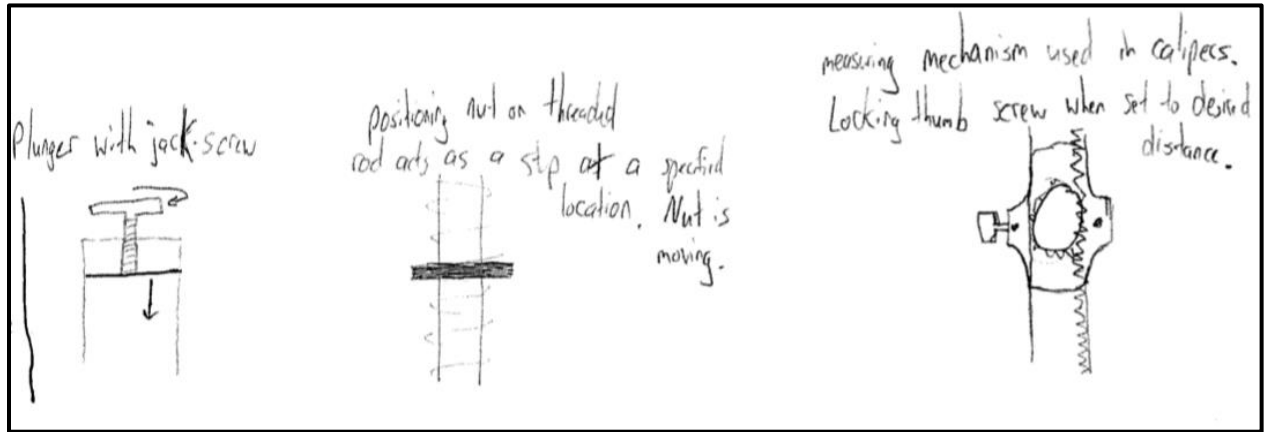 Plunger with jack-screw
positioning nut on threaded
rod acts as a stp at a specified
location. Nut is
moving.
measuring mechanism used in calipers.
Locking thumb screw when set to desired
distance.